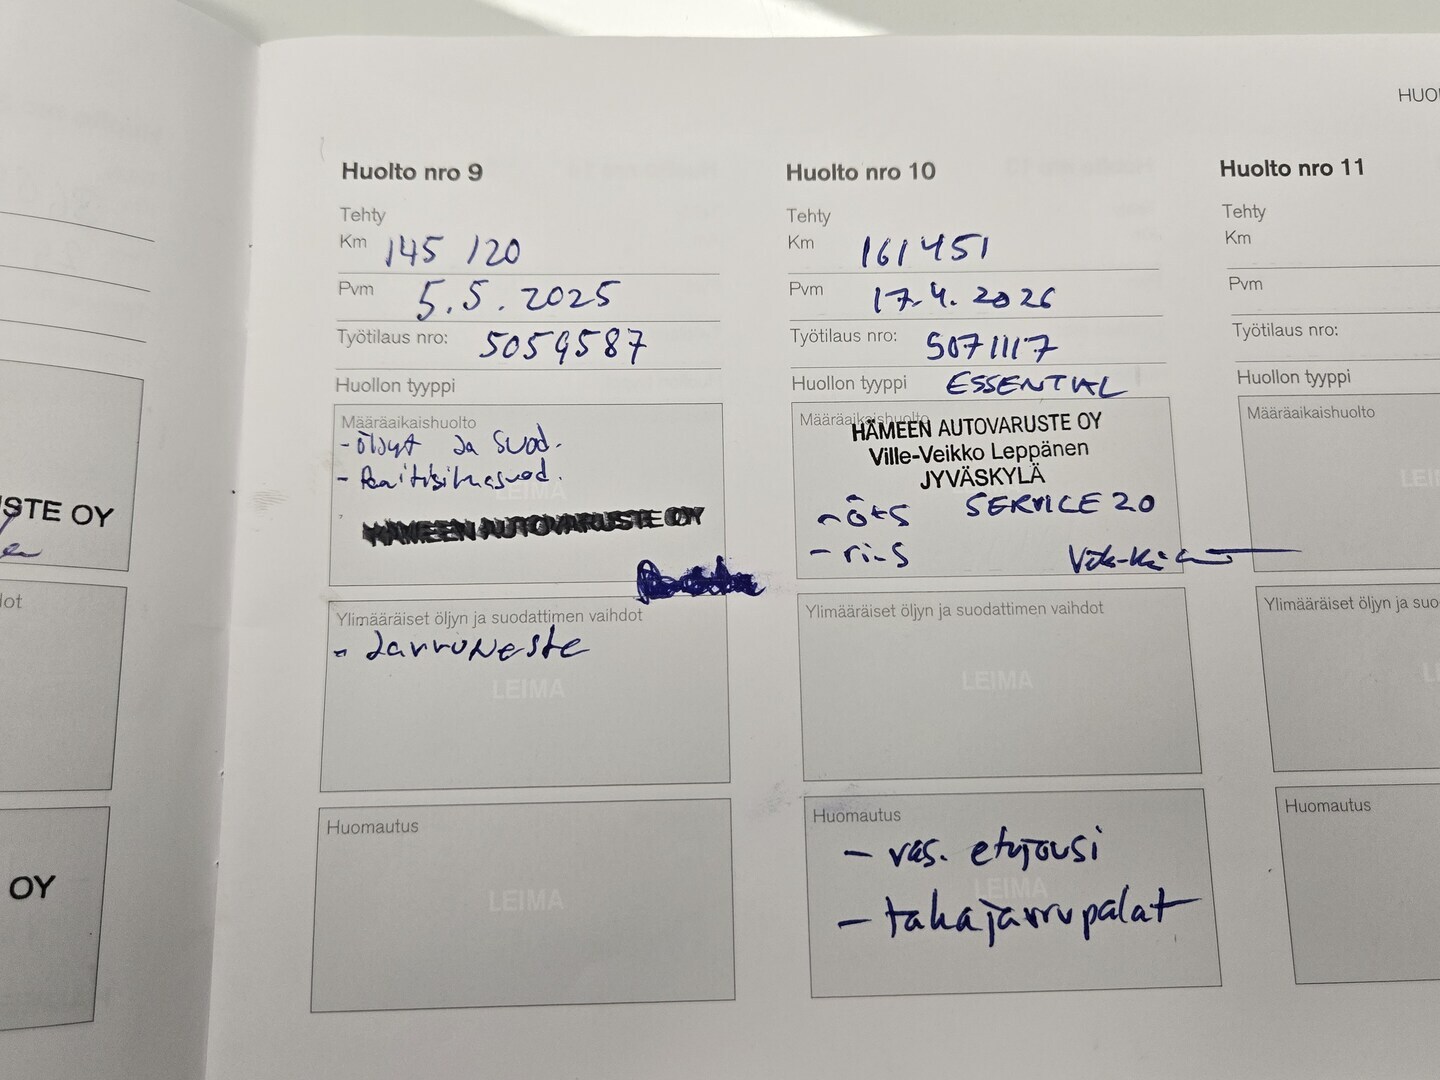 HUO
STE OY
dot
OY
Huolto nro 9
Tehty
Km 145 120
Pvm 5.5.2025
Työtilaus nro: 5059587
Huollon tyyppi
Määräaikaishuolto
- öljyt ja suod.
- Raitisilmasuod.
LEIMA
HÄMEEN AUTOVARUSTE OY
Ylimääräiset öljyn ja suodattimen vaihdot
- Jarruneste
LEIMA
Huomautus
LEIMA
Huolto nro 10
Tehty
Km 161451
Pvm 17.4.2026
Työtilaus nro: 5071117
Huollon tyyppi ESSENTIAL
Määräaikaishuolto
HÄMEEN AUTOVARUSTE OY
Ville-Veikko Leppänen
JYVÄSKYLÄ
- ö+s SERVICE 2.0
- ri-s
Ylimääräiset öljyn ja suodattimen vaihdot
LEIMA
Huomautus
- vas. etujousi
LEIMA
- takajarrupalat
Huolto nro 11
Tehty
Km
Pvm
Työtilaus nro:
Huollon tyyppi
Määräaikaishuolto
LEI
Ylimääräiset öljyn ja suo
L
Huomautus